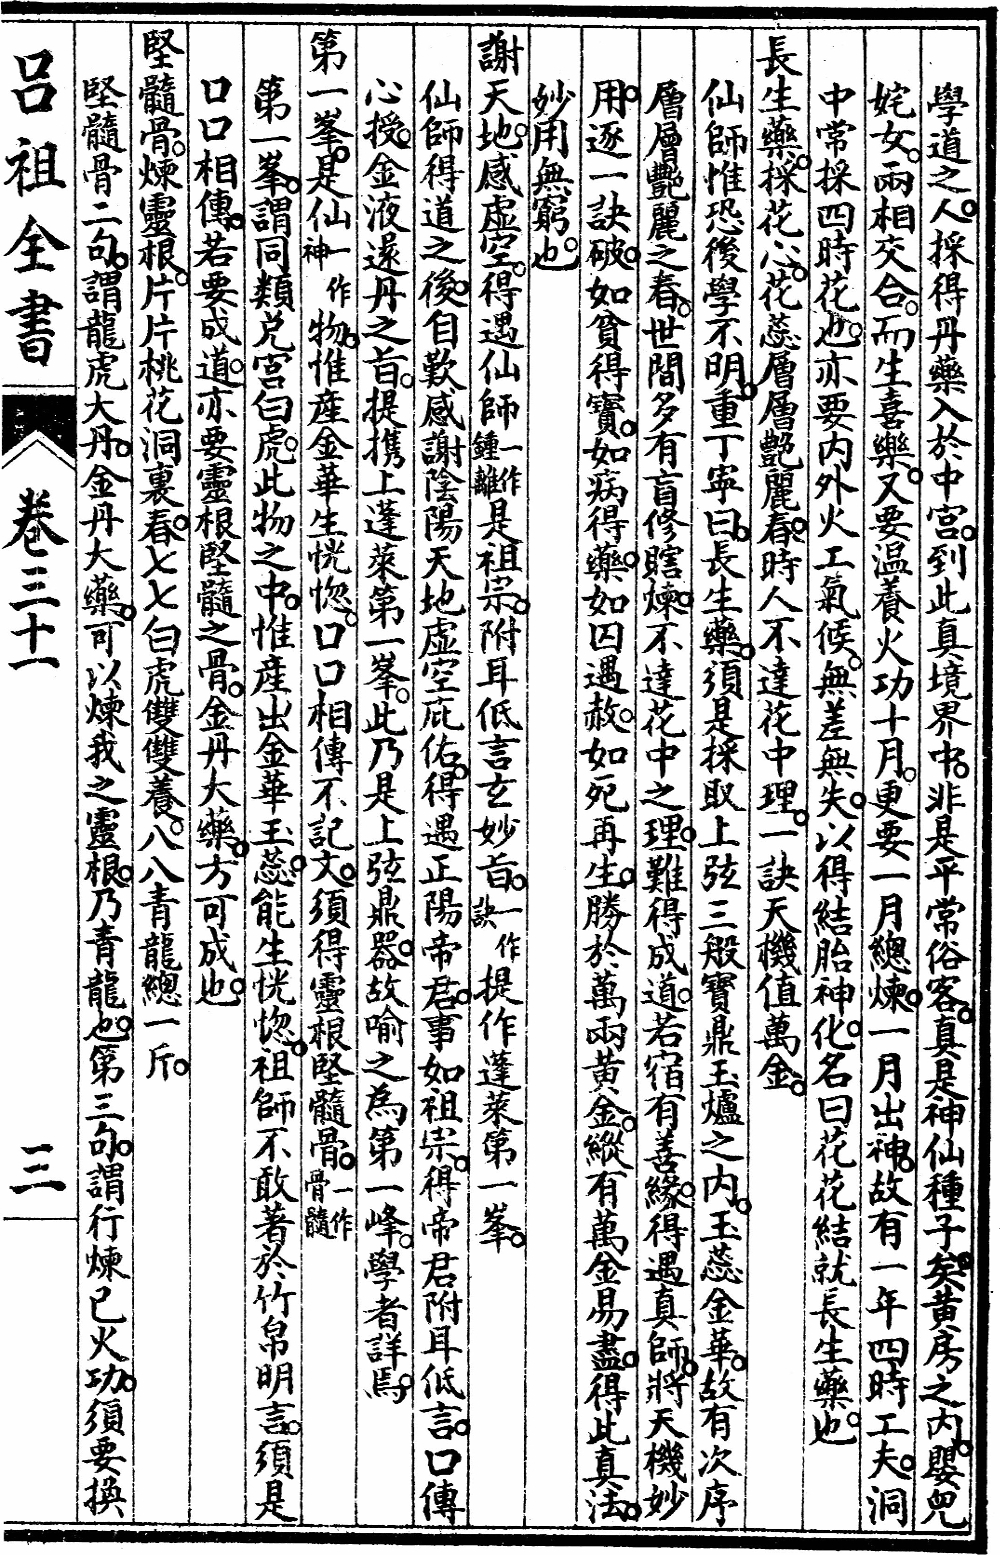 學道之人。採得丹藥入於中宮。到此真境界中。非是平常俗客。真是神仙種子矣。黃房之內。嬰兒
姹女。兩相交合。而生喜樂。又要温養火功十月。更要一月總煉。一月出神。故有一年四時工夫。洞
中常採四時花也。亦要內外火工氣候。無差無失。以得結胎神化。名曰花花結就長生藥也。
長生藥。採花心。花蕊層層艷麗春。時人不達花中理。一訣天機值萬金。
仙師惟恐後學不明。重丁寧曰。長生藥。須是採取上弦三般寶鼎玉爐之內。玉蕊金華。故有次序
層層艷麗之春。世間多有盲修瞎煉。不達花中之理。難得成道。若宿有善緣。得遇真師。將天機妙
用。逐一訣破。如貧得寶。如病得藥。如囚遇赦。如死再生。勝於萬兩黃金。縱有萬金易盡。得此真法。
妙用無窮也。
謝天地。感虛空。得遇仙師一作鍾離是祖宗。附耳低言玄妙旨。一作訣提作蓬萊第一峯。
仙師得道之後。自歎感謝陰陽天地虛空庇佑。得遇正陽帝君。事如祖宗。得帝君附耳低言。口傳
心授。金液還丹之旨。提携上蓬萊第一峯。此乃是上弦鼎器。故喻之為第一峰。學者詳焉。
第一峯。是仙一作神物。惟産金華生恍惚。口口相傳不記文。須得靈根堅髓骨。一作骨髓
第一峯。謂同類兌宮白虎。此物之中。惟産出金華玉蕊。能生恍惚。祖師不敢著於竹帛明言。須是
口口相傳。若要成道。亦要靈根堅髓之骨。金丹大藥。方可成也。
堅髓骨。煉靈根。片片桃花洞裏春。七七白虎雙雙養。八八青龍總一斤。
堅髓骨二句。謂龍虎大丹。金丹大藥。可以煉我之靈根。乃青龍也。第三句。謂行煉已火功。須要換
呂祖全書
卷三十一
三